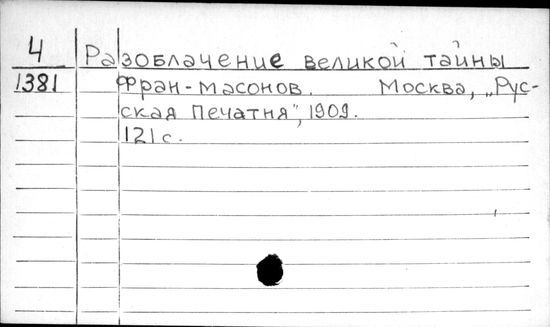 4 Разоблачение великой тайны
1381 Фран-масонов. Москва, „Рус-
ская Печатня", 1909.
121 с.